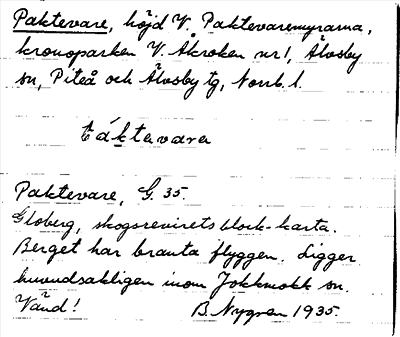 Paktevare, höjd V. Paktevaremyrarna,
kronoparken V. Åkroken nr 1, Älvsby
sn, Piteå och Älvsby tg, Norrb. l.
Paktevare, G. 35.
Globerg, skogsrevirets block-karta.
Berget har branta flyggen. Ligger
huvudsakligen inom Jokkmokk sn.
Vänd! B. Nygren 1935.